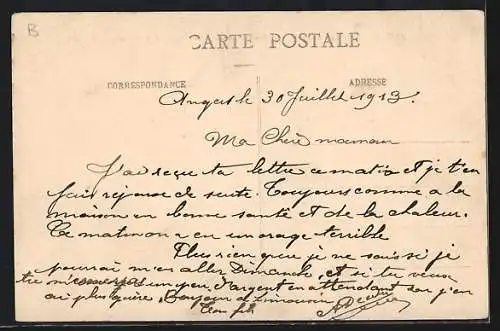 B
CARTE POSTALE
CORRESPONDANCE
ADRESSE
Angers le 30 Juillet 1913.
Ma Chère maman
J'ai reçue ta lettre ce matin et je t'en
fais réponse de suite. Toujours comme a la
maison en bonne santé et de la chaleur.
Ce matin on a eu un orage terrible
Plus rien que je ne sais si je
pourrai m'en aller Dimanche, et si tu veux
m' un peu d'argent en attendant car j'en
ai plus guère, Bonjour a
Ton fils